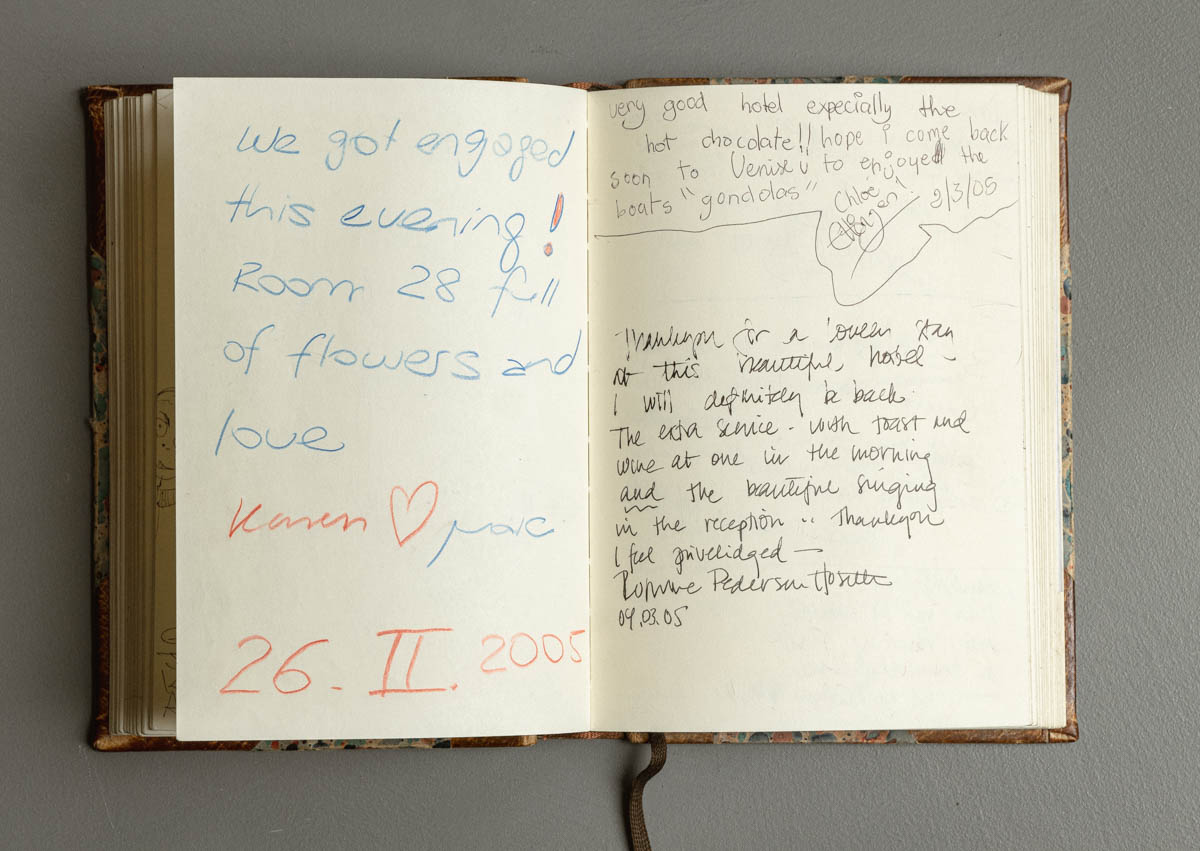 We got engaged
this evening!
Room 28 full
of flowers and
love
Karen ♡ Marc
26. II. 2005
very good hotel expecially the
hot chocolate!! hope i come back
soon to Venise to enjoyed the
boats "gondolas"
Chloé
2/3/05
Thankyou for a stay
at this beautiful hotel –
I will definitely be back.
The extra service - with toast and
wine at one in the morning
and the beautiful singing
in the reception .. Thankyou
I feel privelidged —
Pedersen
04.03.05